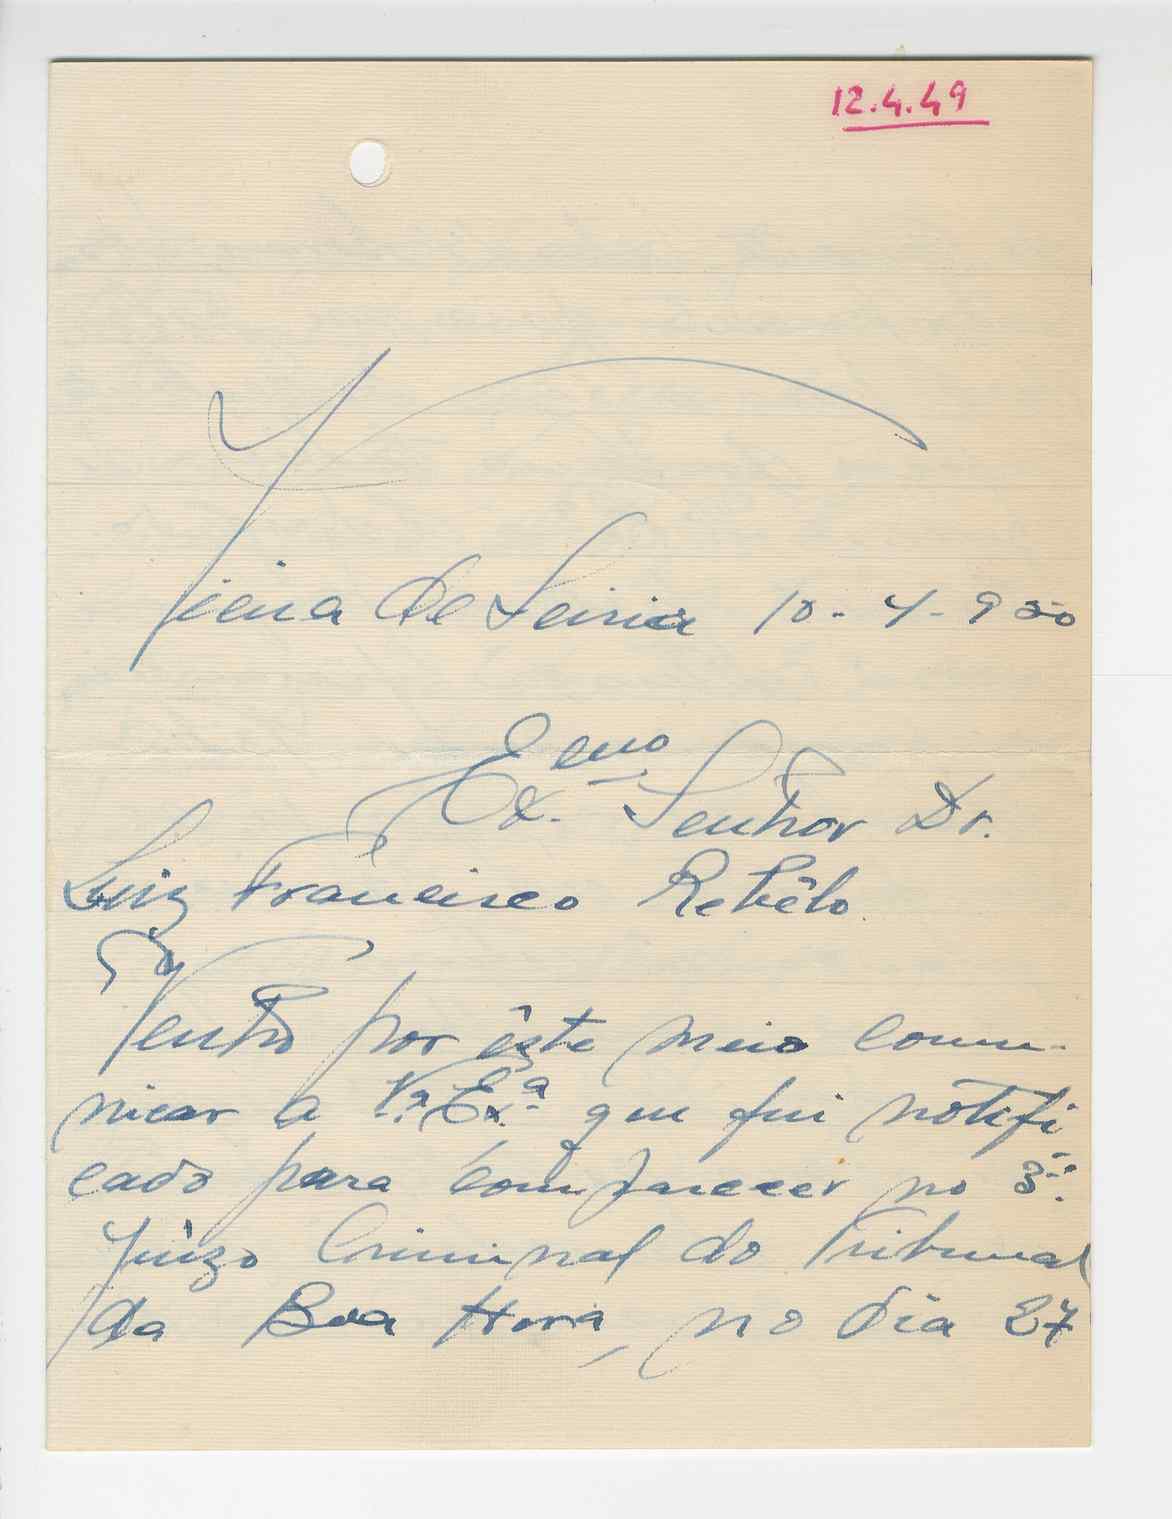 12.4.49
Vieira de Leiria 10-4-950
Ex.emo Senhor Dr.
Luiz Francisco Rebêlo
Venho por êste meio comu-
nicar a V.ª Ex.ª que fui notifi
cado para comparecer no 3º.
Juízo Criminal do Tribunal
da Boa Hora, no dia 27